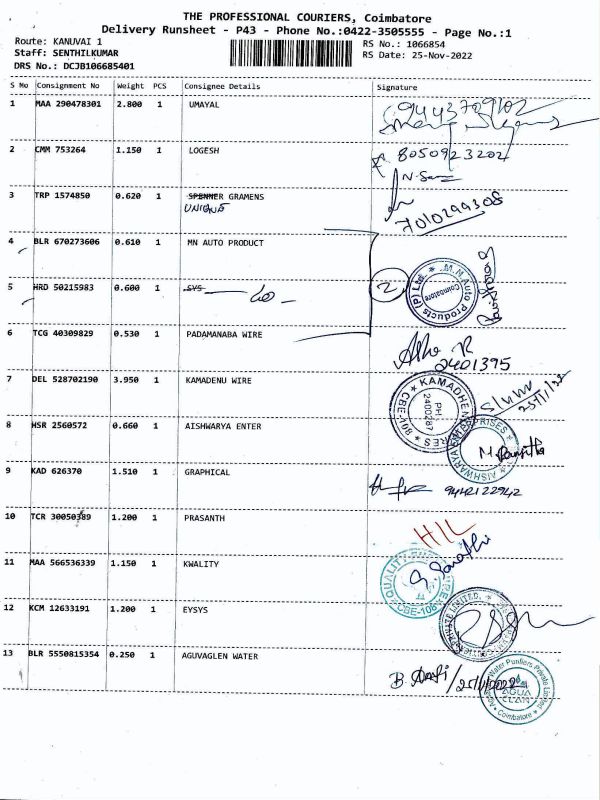 THE PROFESSIONAL COURIERS, Coimbatore
Delivery Runsheet - P43 - Phone No.:0422-3505555 - Page No.:1
Route: KANUVAI 1
Staff: SENTHILKUMAR
DRS No.: DCJB106685401
RS No.: 1066854
RS Date: 25-Nov-2022
S No Consignment No Weight PCS Consignee Details Signature
1 MAA 290478301 2.800 1 UMAYAL 9443709102
2 CMM 753264 1.150 1 LOGESH 8050923202
3 TRP 1574850 0.620 1 SPENNER GRAMENS
UNIQUE 7010299308
4 BLR 670273606 0.610 1 MN AUTO PRODUCT
5 HRD 50215983 0.600 1 SYS 2 M.N Auto Products (P) Ltd. Coimbatore
6 TCG 40309829 0.530 1 PADAMANABA WIRE 2401395
7 DEL 528702190 3.950 1 KAMADENU WIRE KAMADHEN PH 2400287
8 HSR 2560572 0.660 1 AISHWARYA ENTER AISHWARYA ENTERPRISES
9 KAD 626370 1.510 1 GRAPHICAL 9442122942
10 TCR 30050389 1.200 1 PRASANTH H/L
11 MAA 566536339 1.150 1 KWALITY QUALITY
12 KCM 12633191 1.200 1 EYSYS PRIVATE LIMITED
13 BLR 5550815354 0.250 1 AGUVAGLEN WATER
Water Purifiers Private Limited AQUA CLAN Coimbatore